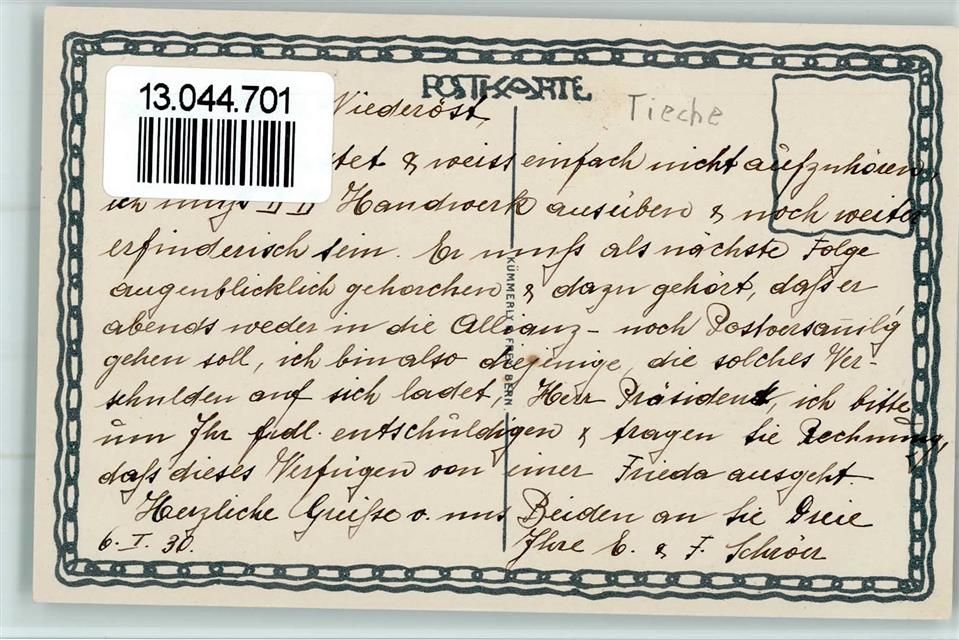 13.044.701
POSTKARTE
Tieche
Niederöst,
tet & weiss einfach nicht aufzuhören,
ich muss Handwerk ausüben & noch weiter
erfinderisch sein. Er muss als nächste Folge
augenblicklich gehorchen & dazu gehört, dass er
abends weder in die Allianz – noch Postversamlg
gehen soll, ich bin also diejenige, die solches Ver-
schulden auf sich ladet, Herr Präsident, ich bitte
um Ihr frdl. entschuldigen & tragen Sie Rechnung,
dass dieses Verfügen von einer Frieda ausgeht.
Herzliche Grüsse v. uns Beiden an Sie Dreie
6. I. 30.
Ihre E. & F. Schröer
KÜMMERLY & FREY BERN.